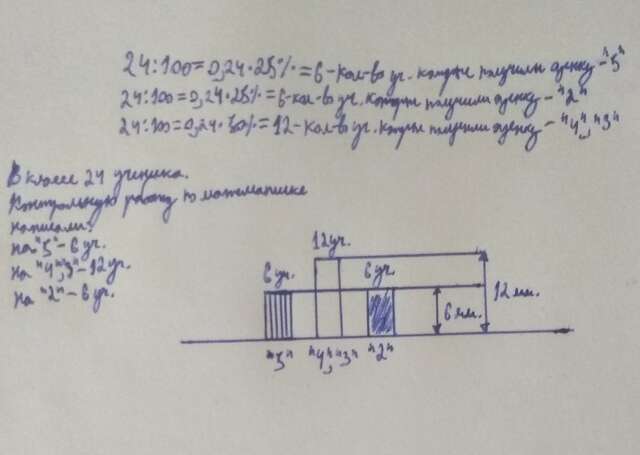 24:100=0,24·25%=6-кол-во уч. которые получили оценку-"5"
24:100=0,24·25%=6-кол-во уч. которые получили оценку-"2"
24:100=0,24·50%=12-кол-во уч. которые получили оценку-"4", "3"
В классе 24 ученика.
Контрольную работу по математике
написали:
на "5"-6 уч.
на "4", "3"-12 уч.
на "2"-6 уч.
12 уч.
6 уч.
6 уч.
6 мм.
12 мм.
"5"
"4", "3"
"2"